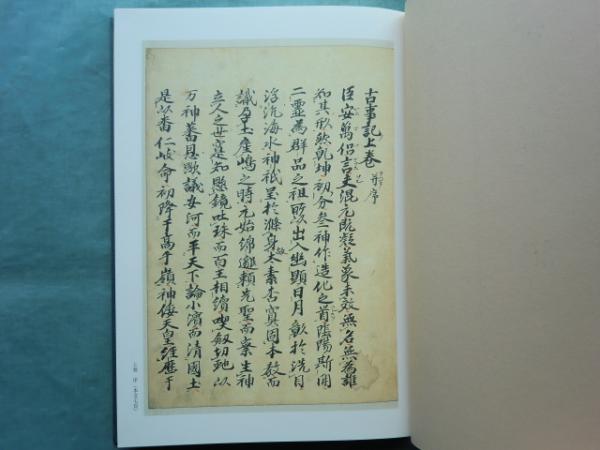 古事記上巻 并序
臣安萬侶言夫混元既凝氣象未效無名無為誰
知其形然乾坤初分參神作造化之首陰陽斯開
二霊為群品之祖所以出入幽顯日月彰於洗目
浮沈海水神祇呈於滌身故太素杳冥因本教而
識孕土産嶋之時元始綿邈頼先聖而察生神
立人之世寔知懸鏡吐珠而百王相續喫釼切虵以
万神蕃息歟議安河而平天下論小濱而清國土
是以番仁岐命初降于高千嶺神倭天皇經歴于
上巻 序